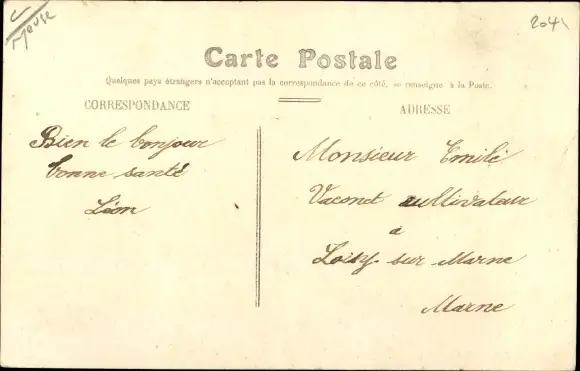 Meuse
2041
Carte Postale
Quelques pays étrangers n'acceptant pas la correspondance de ce côté, se renseigner à la Poste.
CORRESPONDANCE
ADRESSE
Bien le bonjour
bonne santé
Léon
Monsieur Emile
Vaconet cultivateur
à
Loisy sur Marne
Marne